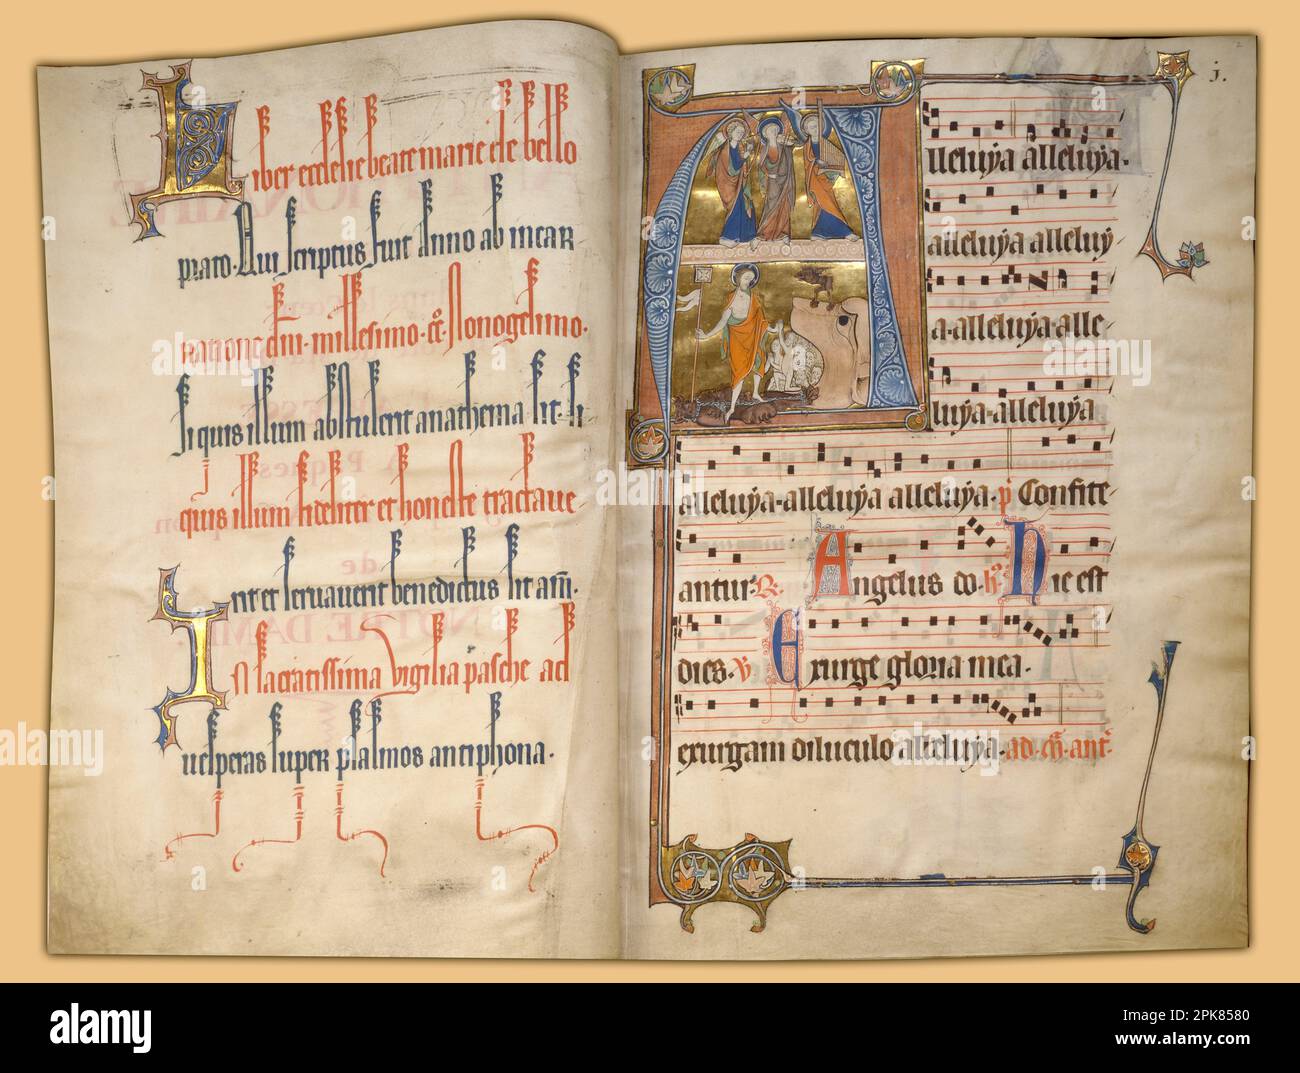 Liber ecclesie beate marie de bello
prato. Qui scriptus fuit Anno ab incar
natione dni. millesimo. cc. Nonogesimo.
si quis illum abstulerit anathema sit. si
quis illum fideliter et honeste tractave
rit et servaverit benedictus sit am.
In sacratissima vigilia pasche ad
vesperas super psalmos antiphona.
j.
Alleluya alleluya.
alleluya alleluy
a. alleluya alle
luya. alleluya
alleluya. alleluya alleluya. p Confite
antur. R. Angelus do. Hic est
dies. V Exurge gloria mea.
exurgam diluculo alleluya. ad. m. ant.
alamy
Image ID: 2PK8580
www.alamy.com